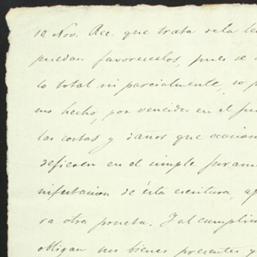 12 Nov. Acc. que trata de la le
puedan favorecerlos, pues se d
lo total ni parcialmente, so p
mo hecho, por vencida en el ju
las costas y daños que ocasion
defieren en el simple juram
nifestacion de ésta escritura, a
ra otra prueba. Y al cumplim
obligan sus bienes presentes y